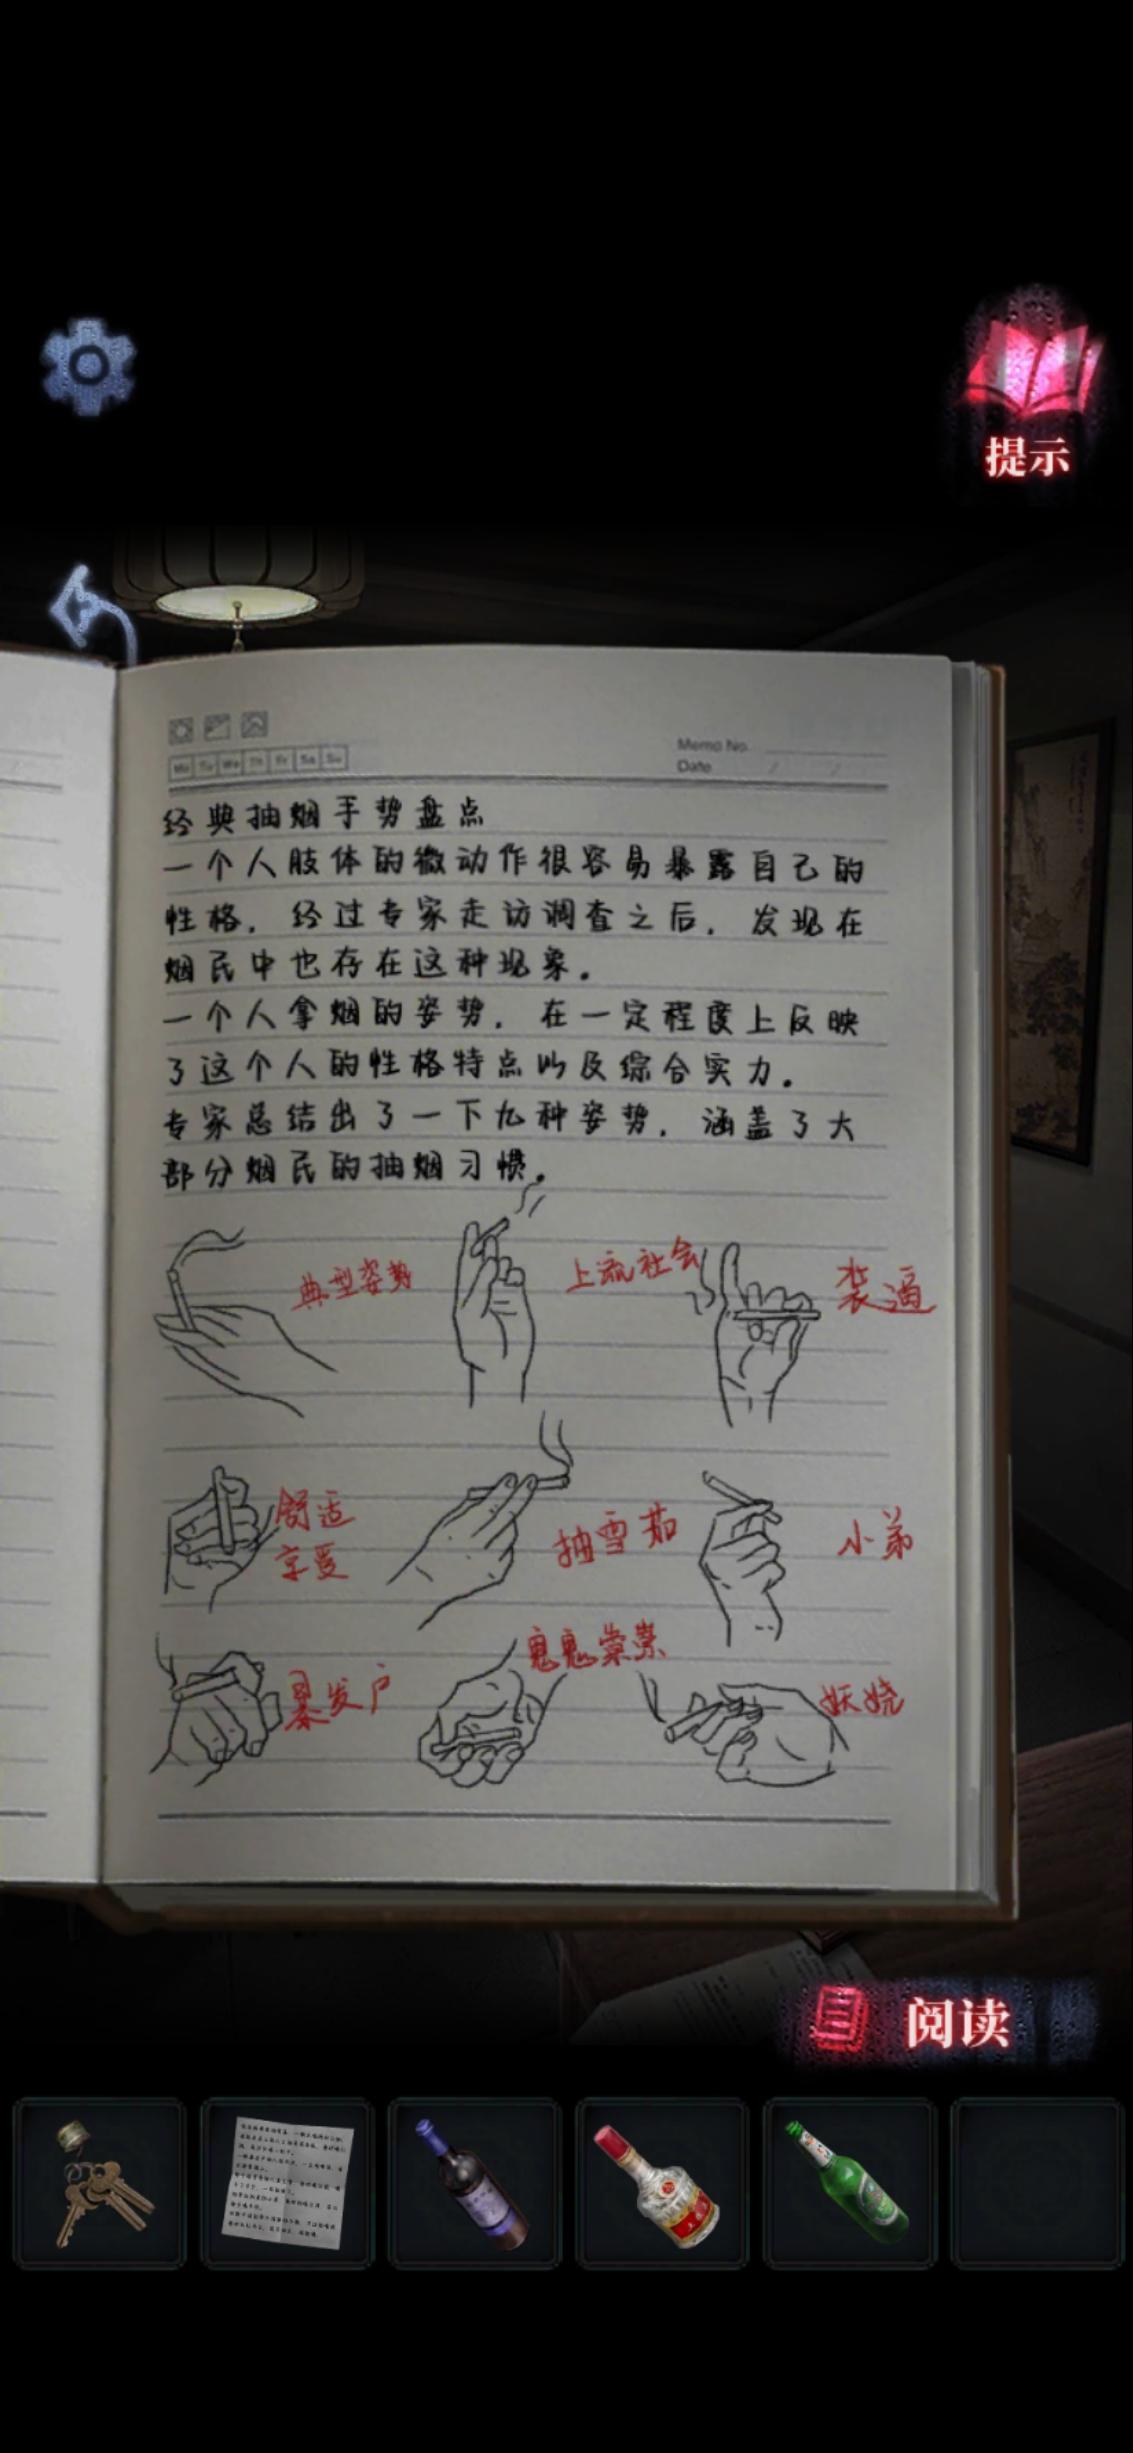 提示
Memo No.
Mo Tu We Th Fr Sa Su
Date / /
经典抽烟手势盘点
一个人肢体的微动作很容易暴露自己的
性格，经过专家走访调查之后，发现在
烟民中也存在这种现象。
一个人拿烟的姿势，在一定程度上反映
了这个人的性格特点以及综合实力。
专家总结出了一下九种姿势，涵盖了大
部分烟民的抽烟习惯。
典型姿势
上流社会
装逼
舒适
享受
抽雪茄
小弟
暴发户
鬼鬼祟祟
妖娆
阅读